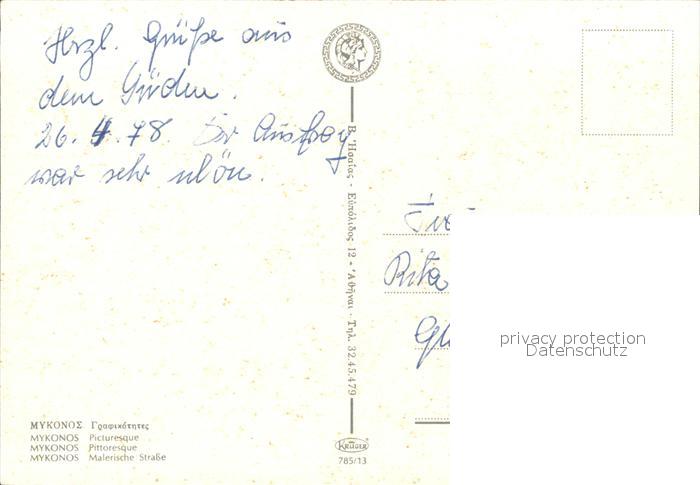 Hrzl. Grüße aus
dem Süden.
26. 4. 78. Der Ausflug
war sehr schön.
Β. Ἡσαΐας - Εὐπόλιδος 12 - Ἀθῆναι - Τηλ. 32.45.479
Rita
privacy protection
Datenschutz
ΜΥΚΟΝΟΣ Γραφικότητες
MYKONOS Picturesque
MYKONOS Pittoresque
MYKONOS Malerische Straße
KRÜGER
785/13